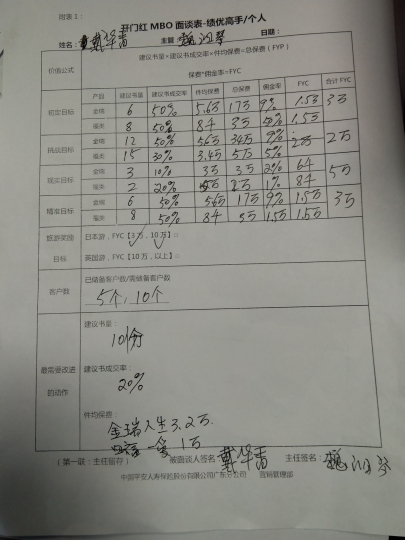 附表1:
开门红 MBO 面谈表-绩优高手/个人
姓名: 戴华青 主管: 日期:
价值公式 建议书量×建议书成交率×件均保费=总保费(FYP)
保费*佣金率=FYC
产品 建议书量 建议书成交率 件均保费 总保费 佣金率 FYC 合计 FYC
初定目标 金瑞 6 50% 5.6万 17万 9% 1.5万 3万
福类 8 50% 8千 3万 50% 1.5万
挑战目标 金瑞 12 50% 5.6万 34万 9% 2万
福类 15 30% 3.4万 5万 5% 2万
现实目标 金瑞 3 10% 3万 3万 2% 6千 5万
福类 2 20% 2万 1% 8千
精准目标 金瑞 6 50% 5.6万 17万 9% 1.5万 3万
福类 8 50% 8千 3万 1.5万 1.5万
旅游奖励 日本游,FYC【3万,10万】
目标 英国游,FYC【10万,以上】
客户数 已储备客户数/需储备客户数
5个,10个
建议书量:
10份
最需要改进的动作 建议书成交率:
20%
件均保费:
金瑞人生3.2万
1万
(第一联:主任留存) 被面谈人签名: 戴华青 主任签名:
中国平安人寿保险股份有限公司广东分公司 营销管理部